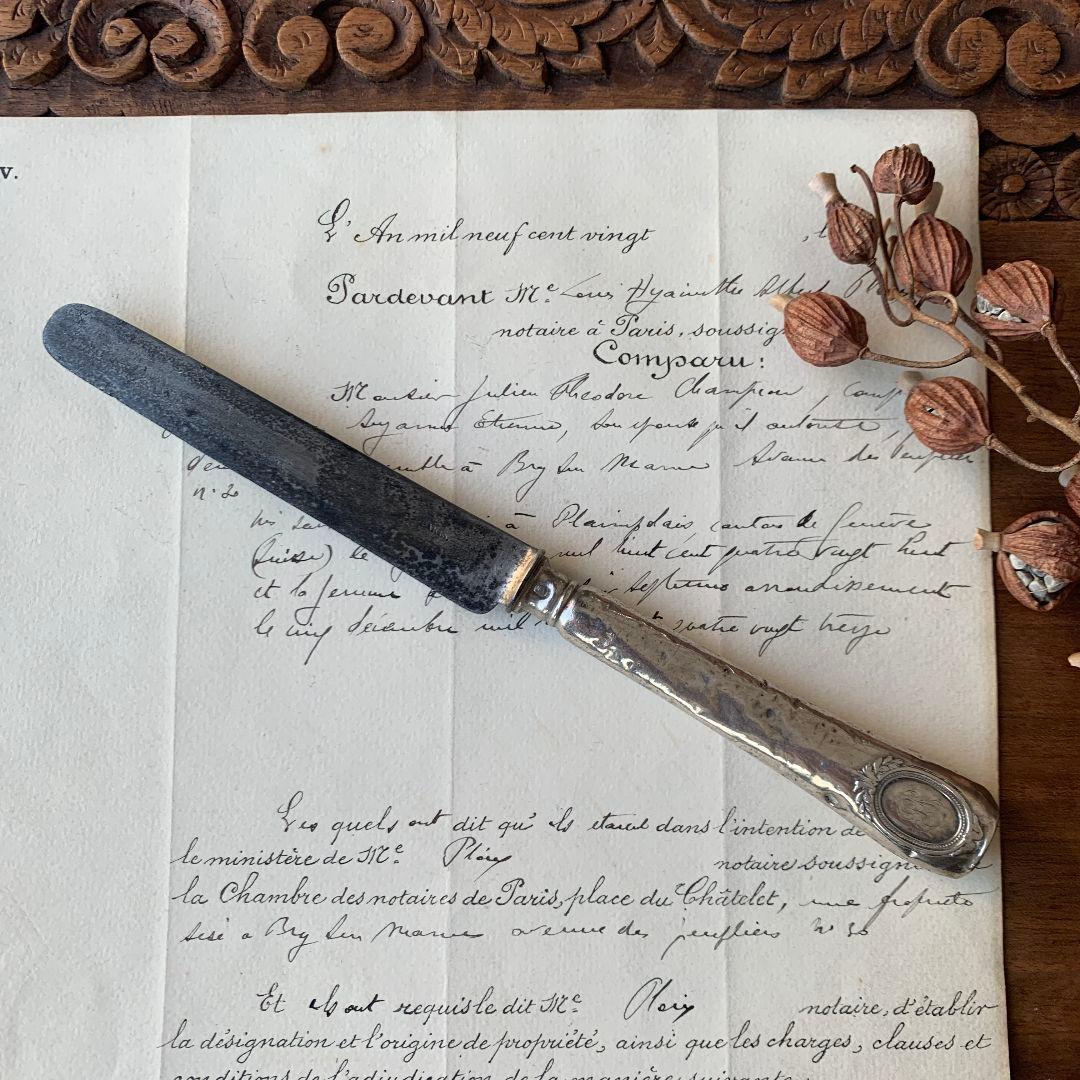 V.
L'An mil neuf cent vingt , l
Pardevant Mᵉ Louis Hyacinthe Albert
notaire à Paris, soussig
Comparu:
Monsieur Julien Théodore Champion,
Suzanne Etienne, son épouse qu'il autorise,
à Bry sur Marne Avenue des
n°
à Plainpalais canton de Genève
(Suisse) le mil huit cent quatre vingt huit
et la femme septième arrondissement
le cinq décembre mil quatre vingt treize
Les quels ont dit qu'ils étaient dans l'intention de
le ministère de Mᵉ Ploix notaire soussign
la Chambre des notaires de Paris, place du Châtelet, une propriété
sise à Bry sur Marne avenue des N° 30
Et ils ont requis le dit Mᵉ Ploix notaire, d'établir
la désignation et l'origine de propriété, ainsi que les charges, clauses et
conditions de l'adjudication de la manière suivante: